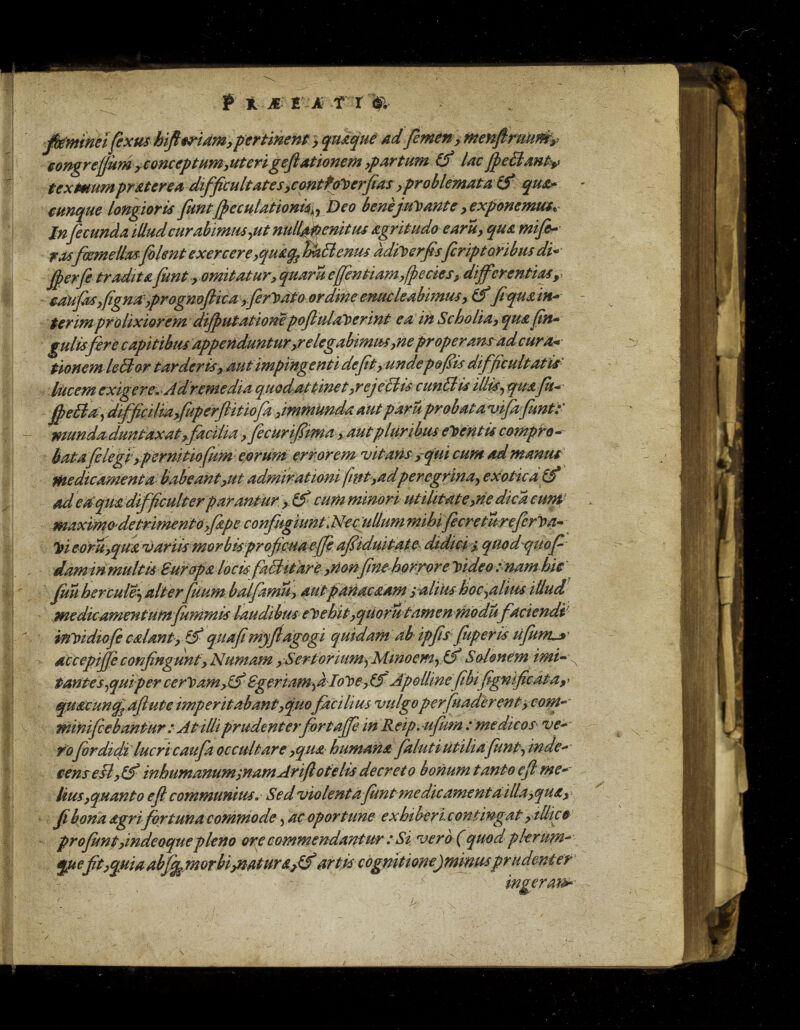 PRÆFATIO.
fœminei ſexus hiſtoriam, pertinent, quæque ad ſemen, menſtruum,
congreſſum, conceptum, uteri geſtationem, partum & lac ſpectant,
textuum præterea difficultates, controverſias, problemata & quæ-
cunque longioris ſunt ſpeculationis, Deo bene juvante, exponemus.
In ſecunda illud curabimus, ut nulla penitus ægritudo earū, quæ miſe-
ras fœmellas ſolent exercere, quæq; hactenus à diverſis ſcriptoribus di-
ſperſe tradita ſunt, omitatur, quarū eſſentiam, ſpecies, differentias,
cauſas, ſigna, prognoſtica, ſervato ordine enucleabimus, & ſi quæ in-
terim prolixiorem diſputationē poſtulaverint ea in Scholia, quæ ſin-
gulis fere capitibus appenduntur, relegabimus, ne properans ad cura-
tionem lector tarderis, aut impingenti deſit, unde poßis difficultatis
lucem exigere. Ad remedia quod attinet, rejectis cunctis illis, quæ ſu-
ſpecta, difficilia, ſuperſtitioſa, immunda aut parū probata viſa ſunt:
munda duntaxat, facilia, ſecurißima, aut pluribus eventis compro-
bata ſelegi, pernitioſum eorum errorem vitans, qui cum ad manus
medicamenta habeant, ut admirationi ſint, ad peregrina, exotica &
ad ea quæ difficulter parantur, & cum minori utilitate, ne dicā cum
maximo detrimento, ſæpe confugiunt. Nec ullum mihi ſecretū reſerva-
vi eorū, quæ variis morbis proficua eſſe aßiduitate didici; quod quoſ-
dam in multis Europæ locis factitare, non ſine horrore video: nam hic
ſuū herculē, alter ſuum balſamū, aut panacæam; alius hoc, alius illud
medicamentum ſummis laudibus evehit, quorū tamen modū faciendi
invidioſe cælant, & quaſi myſtagogi quidam ab ipſis ſuperis uſum
accepiſſe confingunt, Numam, Sertorium, Minoem, & Solonem imi-
tantes, qui per cervam, & Egeriam, à Iove, & Apolline ſibi ſignificata,
quæcunq; aſtute imperitabant, quo facilius vulgo perſuaderent, com-
miniſcebantur: At illi prudenter fortaſſe in Reip. uſum: medicos ve-
ro ſordidi lucri cauſa occultare, quæ humanæ ſaluti utilia ſunt, inde-
cens eſt, & inhumanum; nam Ariſtotelis decreto bonum tanto eſt me-
lius, quanto eſt communius. Sed violenta ſunt medicamenta illa, quæ,
ſi bona ægri fortuna commode, ac oportune exhiberi contingat, illico
proſunt, indeoque pleno ore commendantur: Si verò (quod plerum-
que fit, quia abſq; morbi, naturæ, & artis cognitione) minus prudenter
ingeran-